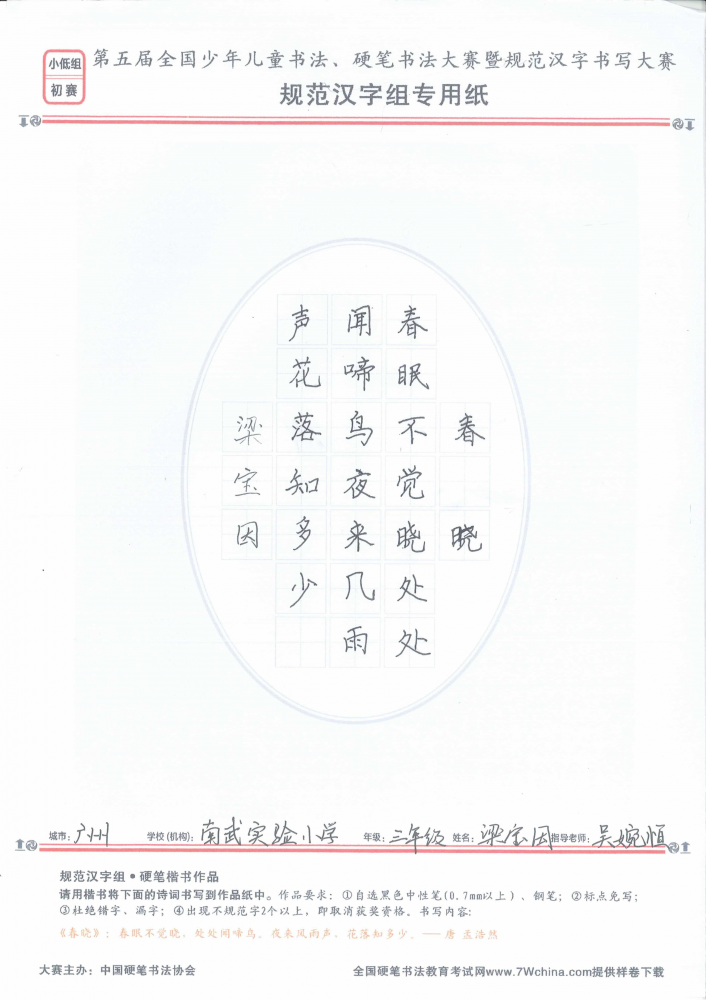 小低组
初赛
第五届全国少年儿童书法、硬笔书法大赛暨规范汉字书写大赛
规范汉字组专用纸
春晓
春眠不觉晓处处
闻啼鸟夜来几雨
声花落知多少
梁宝因
城市:广州 学校(机构):南武实验小学 年级:三年级 姓名:梁宝因 指导老师:吴婉恒
规范汉字组•硬笔楷书作品
请用楷书将下面的诗词书写到作品纸中。作品要求:①自选黑色中性笔(0.7mm以上)、钢笔;②标点免写;
③杜绝错字、漏字;④出现不规范字2个以上,即取消获奖资格。书写内容:
《春晓》:春眠不觉晓,处处闻啼鸟。夜来风雨声,花落知多少。——唐 孟浩然
大赛主办:中国硬笔书法协会
全国硬笔书法教育考试网www.7Wchina.com提供样卷下载